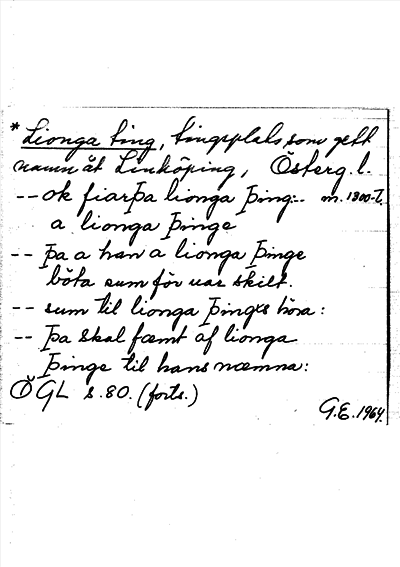 * Lionga ting, tingsplats som gett
namn åt Linköping, Österg.l.
-- ok fiarþa lionga þing-- m. 1300-t.
a lionga þinge
-- þa a han a lionga þinge
böta sum för uar skilt.
-- sum til lionga þingxs höra:
-- þa skal fæmt af lionga
þinge til hans næmna:
ÖGL s.80. (forts.)
G.E. 1964.